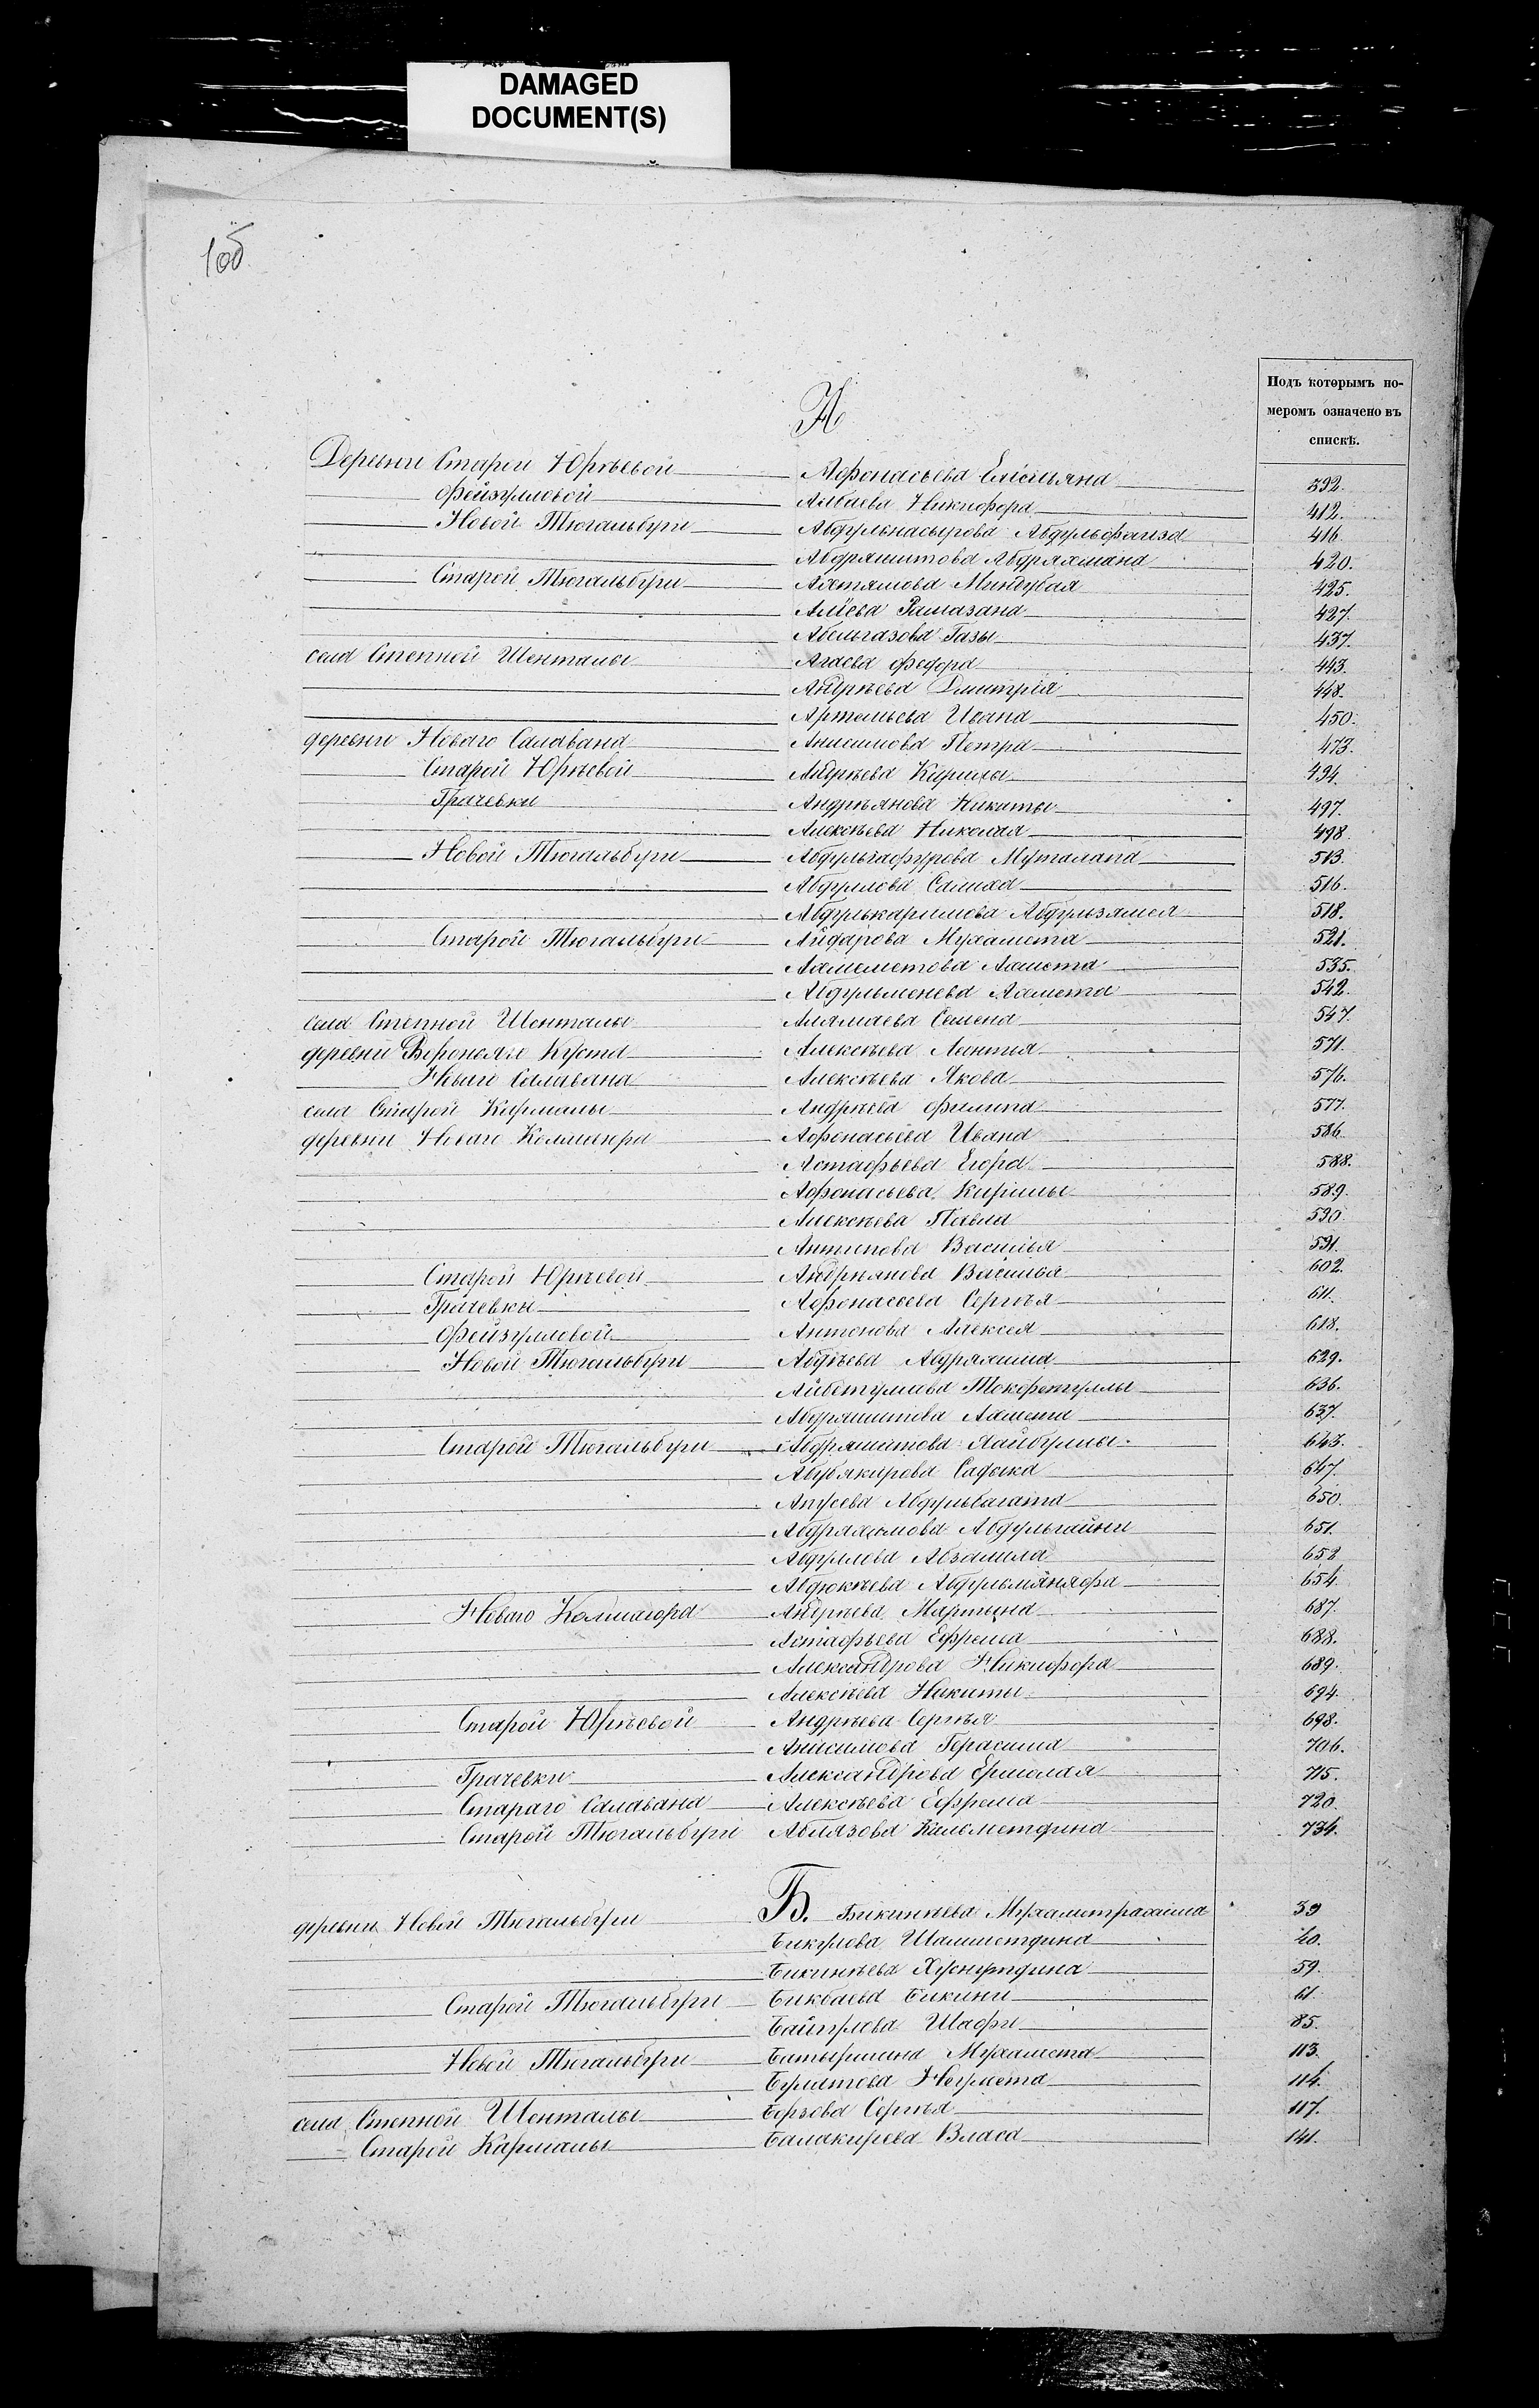 DAMAGED
DOCUMENT(S)
1об
Подъ которымъ но-
меромъ означено въ
спискѣ.
А
Деревни Старой Юрѣевой Афонасьева Емельяна 392.
Фейзулловой Алибаева Никифора 412.
Новой Тюгальбуги Абдульнасырова Абдульфаиза 416.
Абдряшитова Абдряхмана 420.
Старой Тюгальбуги Ахтямова Миндубая 425.
Аліева Рамазана 427.
Абельгазова Газы 437.
села Степной Шенталы Агаева Федора 443.
Андрѣева Дмитрія 448.
Артемьева Ивана 450.
деревни Новаго Салавана Анисимова Петра 473.
Старой Юрѣевой Андрѣева Кирилы 494.
Грачевки Андреянова Никиты 497.
Алексѣева Николая 498.
Новой Тюгальбуги Абдульгафурова Муталапа 513.
Абдулова Салиха 516.
Абдулькаримова Абдульзямея 518.
Старой Тюгальбуги Айдарова Мухамета 521.
Ахмеметова Ахмета 535.
Абдульменева Ахмета 542.
села Степной Шенталы Алямаева Семена 547.
деревни Воронѣяго Куста Алексѣева Леонтья 571.
Новаго Салавана Алексѣева Якова 576.
села Старой Кармалы Андрѣева Филипа 577.
деревни Новаго Колмаюра Афонасьева Ивана 586.
Астафьева Егора 588.
Афонасьева Кирилы 589.
Алексѣева Павла 590.
Антипова Василья 591.
Старой Юрѣевой Андреянова Василья 602.
Грачевки Афонасьева Сергѣя 611.
Фейзулловой Антонова Алексея 618.
Новой Тюгальбуги Абдѣева Абдряхима 629.
Айбетуллова Токфетуллы 636.
Абдряшитова Ахмета 637.
Старой Тюгальбуги Абдряшитова Хайбуллы 643.
Абубякирова Садыка 647.
Апусева Абдульвагапа 650.
Абдряхимова Абдульгайни 651.
Абдулова Абзалила 652
Абдюкѣева Абдульмянафа 654.
Новаго Колмаюра Андрѣева Мартына 687.
Астафьева Ефрема 688.
Александрова Никифора 689.
Алексѣева Никиты 694.
Старой Юрѣевой Андрѣева Сергѣя 698.
Анисимова Герасима 706.
Грачевки Александрова Ермолая 715.
Стараго Салавана Алексѣева Ефрема 720.
Старой Тюгальбуги Аблязова Камеметдина 734.
Б.
деревни Новой Тюгальбуги Бикинѣева Мухаметрахима 39
Бикулова Шамметдина 40.
Бикинѣева Хуснутдина 59.
Старой Тюгальбуги Бикбаева Бикини 61.
Байгулова Шафи 85.
Новой Тюгальбуги Батыршина Мухамета 113.
Булатова Негмета 114.
села Степной Шенталы Борзова Сергѣя 117.
Старой Кармалы Балакирева Власа 141.